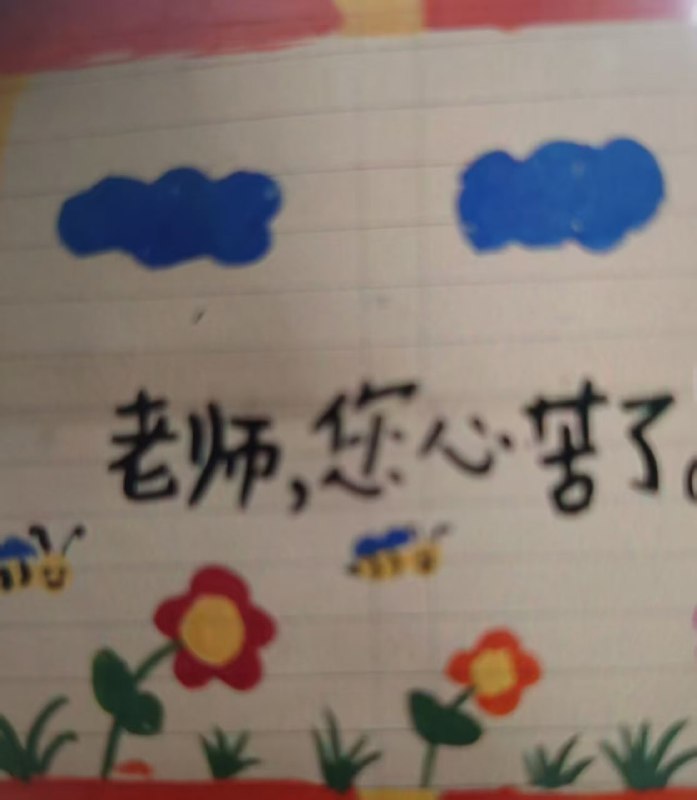 老师,您心苦了。